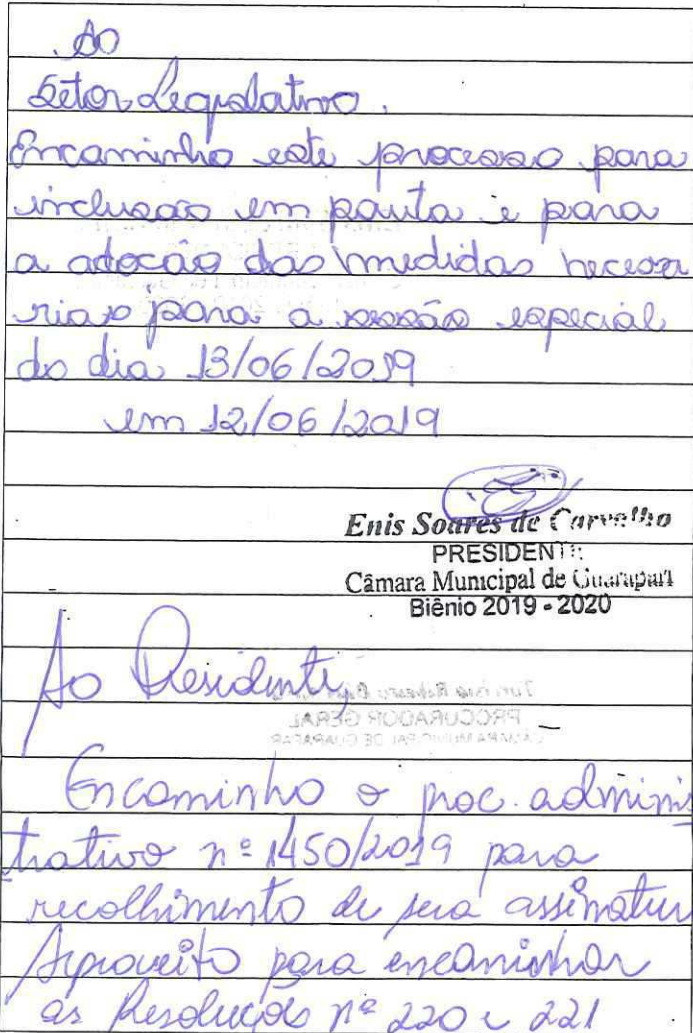 Ao
Setor Legislativo.
Encaminho este processo para
inclusão em pauta e para
a adoção das medidas necessa
rias para a sessão especial
do dia 13/06/2019
em 12/06/2019
Enis Soares de Carvalho
PRESIDENTE
Câmara Municipal de Guarapari
Biênio 2019 - 2020
Ao Presidente,
PROCURADOR GERAL
CÂMARA MUNICIPAL DE GUARAPARI
Encaminho o proc. adminis
trativo nº 1450/2019 para
recolhimento de sua assinatur
Aproveito para encaminhar
as Resoluções nº 220 e 221